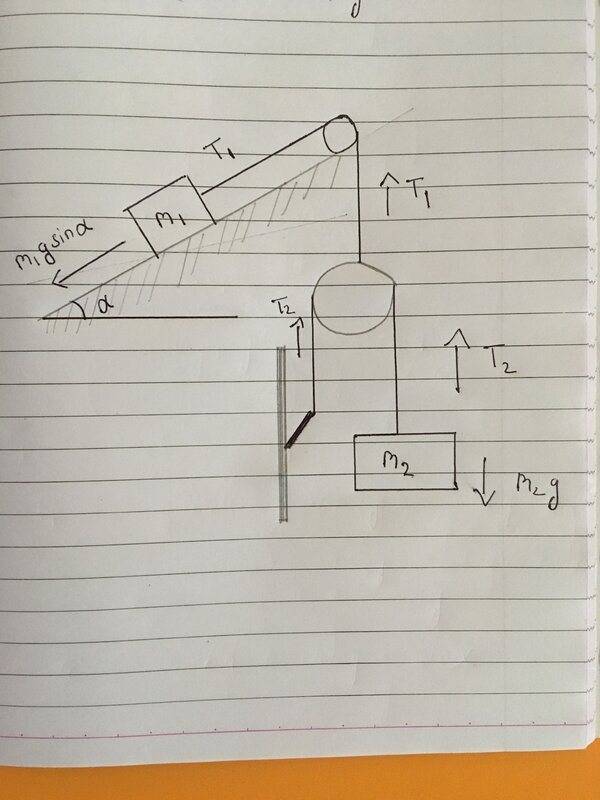 T₁
m₁
m₁gsinα
α
T₁
T₂
T₂
m₂
m₂g